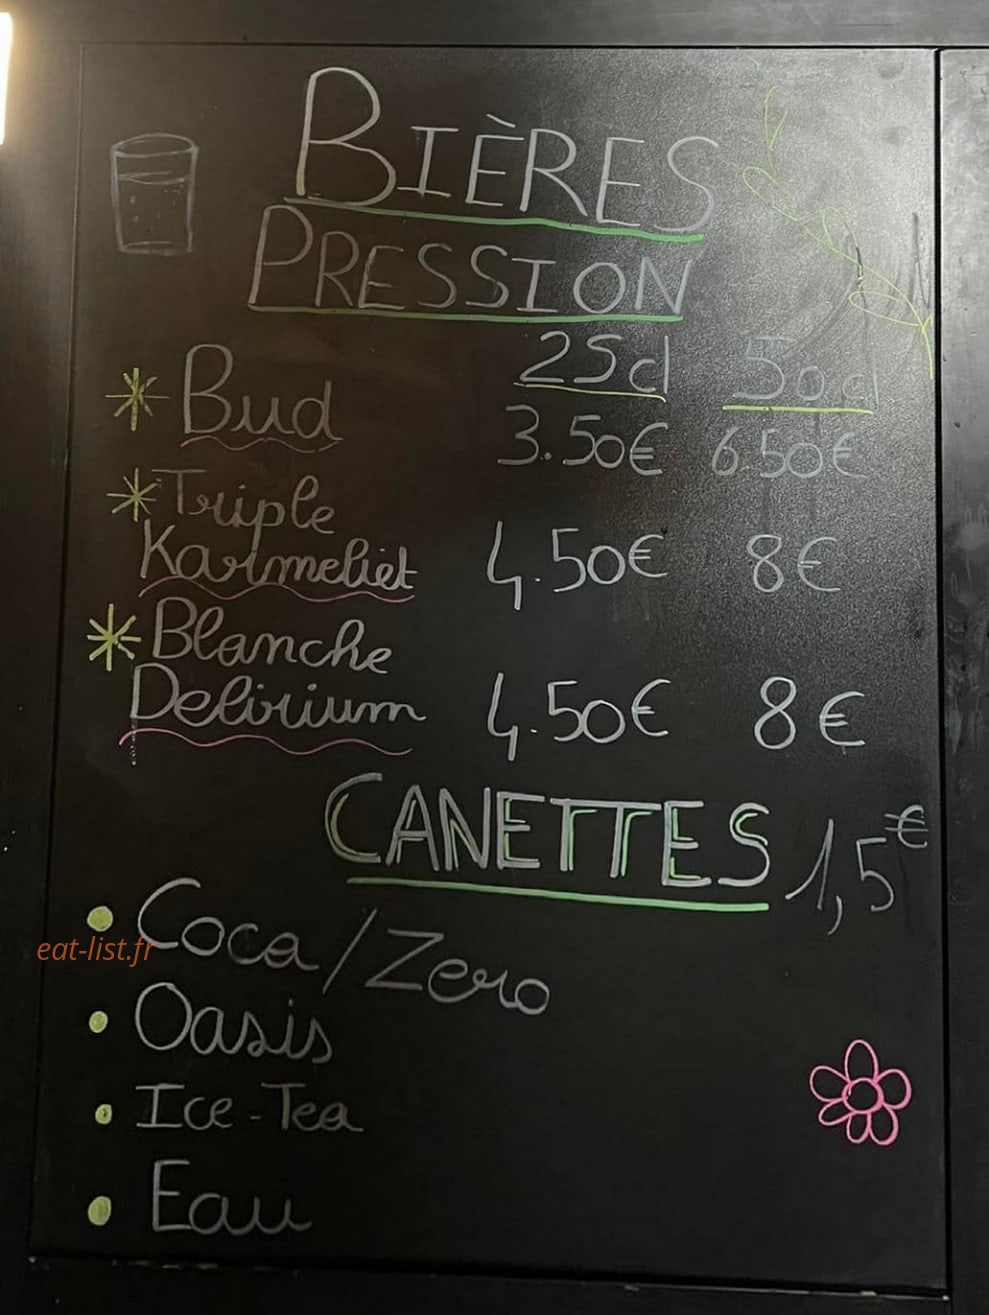 BIÈRES
PRESSION
25cl 50cl
Bud 3.50€ 6.50€
Triple
Karmeliet 4.50€ 8€
Blanche
Delirium 4.50€ 8€
CANETTES 1,5€
Coca/Zero
eat-list.fr
Oasis
Ice-Tea
Eau